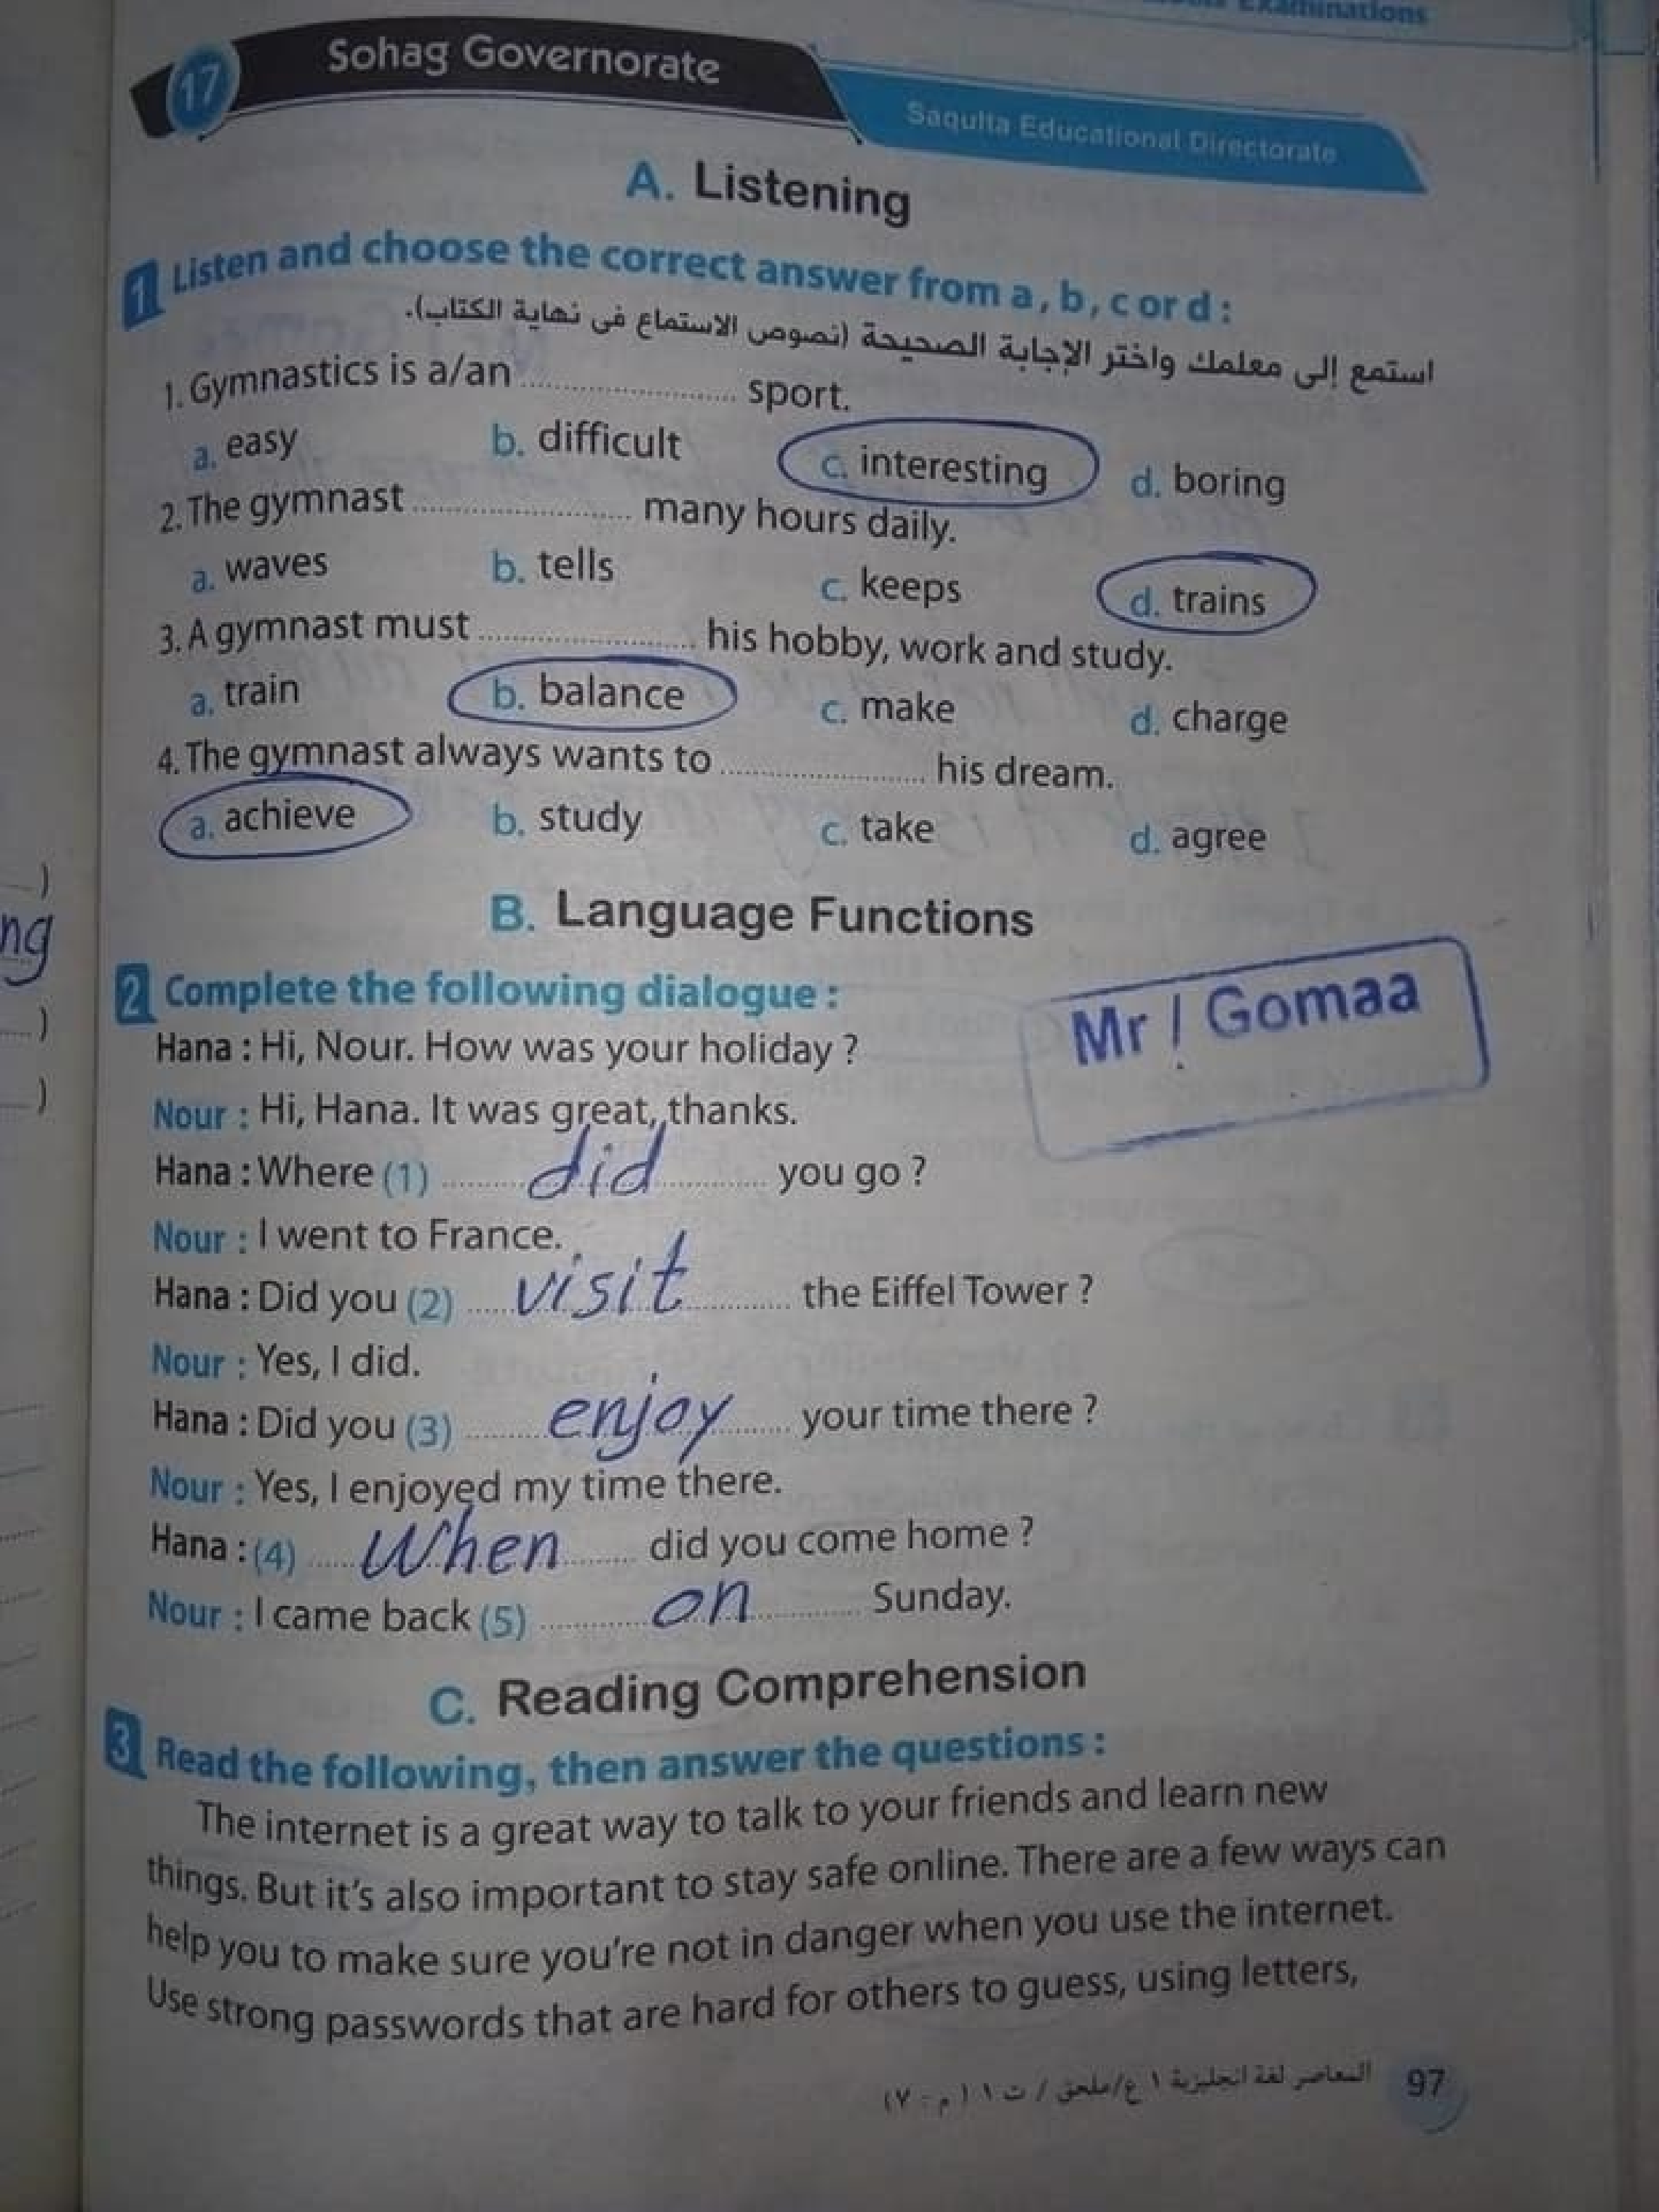 Examinations
17 Sohag Governorate
Saqulta Educational Directorate
A. Listening
1 Listen and choose the correct answer from a , b , c or d :
استمع إلى معلمك واختر الإجابة الصحيحة (نصوص الاستماع فى نهاية الكتاب).
1. Gymnastics is a/an .................... sport.
a. easy b. difficult c. interesting d. boring
2. The gymnast .................... many hours daily.
a. waves b. tells c. keeps d. trains
3. A gymnast must .................... his hobby, work and study.
a. train b. balance c. make d. charge
4. The gymnast always wants to .................... his dream.
a. achieve b. study c. take d. agree
B. Language Functions
2 Complete the following dialogue :
Mr / Gomaa
Hana : Hi, Nour. How was your holiday ?
Nour : Hi, Hana. It was great, thanks.
Hana : Where (1) did you go ?
Nour : I went to France.
Hana : Did you (2) visit the Eiffel Tower ?
Nour : Yes, I did.
Hana : Did you (3) enjoy your time there ?
Nour : Yes, I enjoyed my time there.
Hana : (4) When did you come home ?
Nour : I came back (5) on Sunday.
C. Reading Comprehension
3 Read the following, then answer the questions :
The internet is a great way to talk to your friends and learn new
things. But it's also important to stay safe online. There are a few ways can
help you to make sure you're not in danger when you use the internet.
Use strong passwords that are hard for others to guess, using letters,
المعاصر لغة انجليزية ١ ع/ملحق / ت ١ (م - ٧) 97
ng